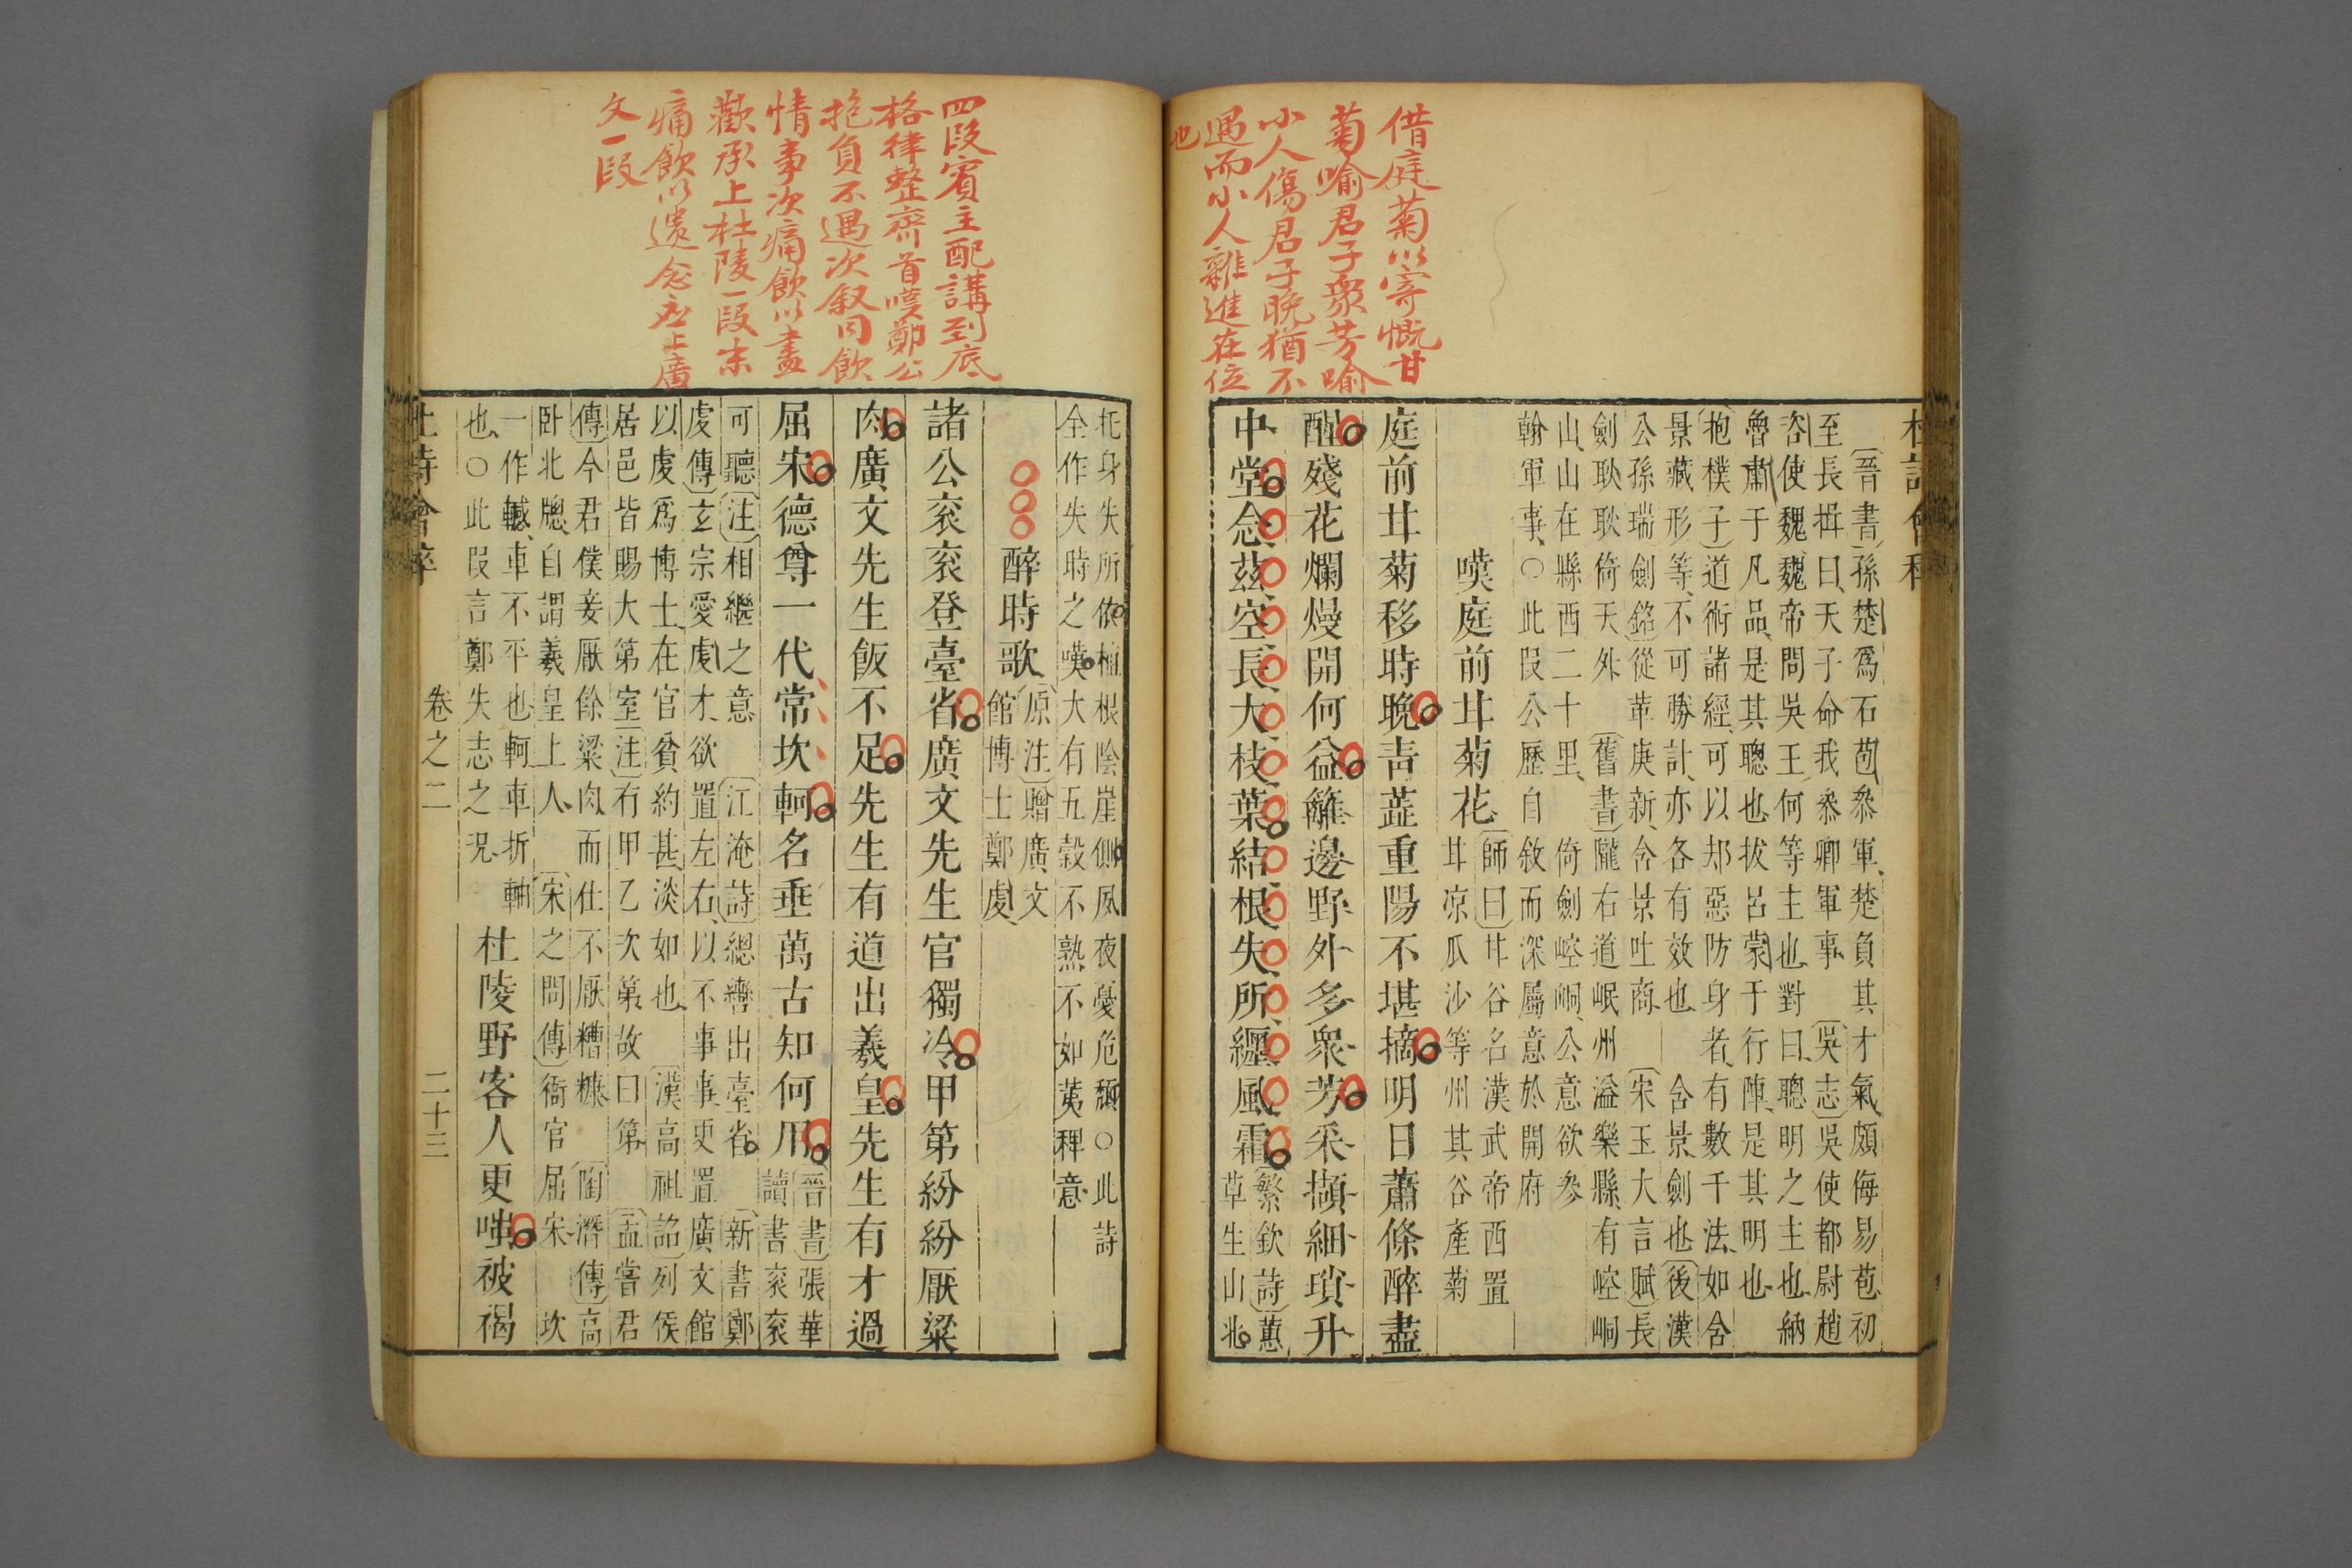 借庭菊以寄慨甘
菊喻君子衆芳喻
小人傷君子晚猶不
遇而小人雜進在位
也
杜詩會稡
晉書孫楚爲石苞叅軍楚負其才氣頗侮易苞初
至長揖曰天子命我叅卿軍事 吳志吳使都尉趙
咨使魏魏帝問吳王何等主也對曰聰明之主也納
魯肅于凡品是其聰也拔呂蒙于行陣是其明也
抱樸子道術諸經可以却惡防身者有數千法如含
景藏形等不可勝計亦各有效也 含景劍也後漢
公孫瑞劍銘從革庚新含景吐商 宋玉大言賦長
劍耿耿倚天外 舊書隴右道岷州溢樂縣有崆峒
山山在縣西二十里 倚劍崆峒公意欲參
翰軍事○此叚公歷自敘而深屬意於開府
嘆庭前甘菊花
師曰甘谷名漢武帝西置
甘凉瓜沙等州其谷產菊
庭前甘菊移時晚青蘂重陽不堪摘明日蕭條醉盡
醒殘花爛熳開何益籬邊野外多衆芳采擷細瑣升
中堂念茲空長大枝葉結根失所纏風霜
繁欽詩蕙
草生山北
托身失所依植根陰崖側夙夜憂危頹○此詩
全作失時之嘆大有五穀不熟不如荑稗意
四段賓主配講到底
格律整齊首嘆鄭公
抱負不遇次叙同飲
情事次痛飲以盡
歡承上杜陵一段末
痛飲以遣念應上廣
文一段
醉時歌
原注贈廣文
館博士鄭虔
諸公衮衮登臺省廣文先生官獨冷甲第紛紛厭粱
肉廣文先生飯不足先生有道出羲皇先生有才過
屈宋德尊一代常坎軻名垂萬古知何用
晉書張華
讀書衮衮
可聽注相繼之意 江淹詩總轡出臺省 新書鄭
虔傳玄宗愛虔才欲置左右以不事事更置廣文館
以虔爲博士在官貧約甚淡如也 漢高祖詔列侯
居邑皆賜大第室注有甲乙次第故曰第 孟嘗君
傳今君僕妾厭餘粱肉而仕不厭糟糠 陶潛傳高
卧北牕自謂羲皇上人 宋之問傳衙官屈宋 坎
一作轗車不平也軻車折軸
也○此叚言鄭失志之况
杜陵野客人更嗤被褐
杜詩會稡
卷之二
二十三